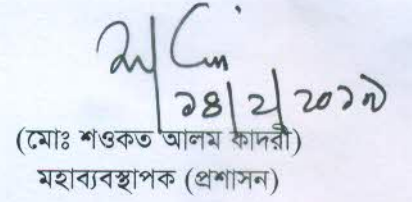 ১৪/২/২০১৭
(মোঃ শওকত আলম কাদরী)
মহাব্যবস্থাপক (প্রশাসন)